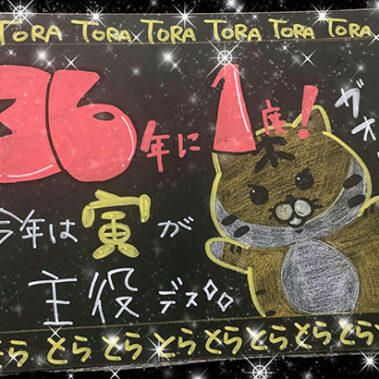 TORA TORA TORA TORA TORA TORA TORA
36年に1度!
ガオ
今年は寅が
主役デス
とら とら とら とら とら とら とら